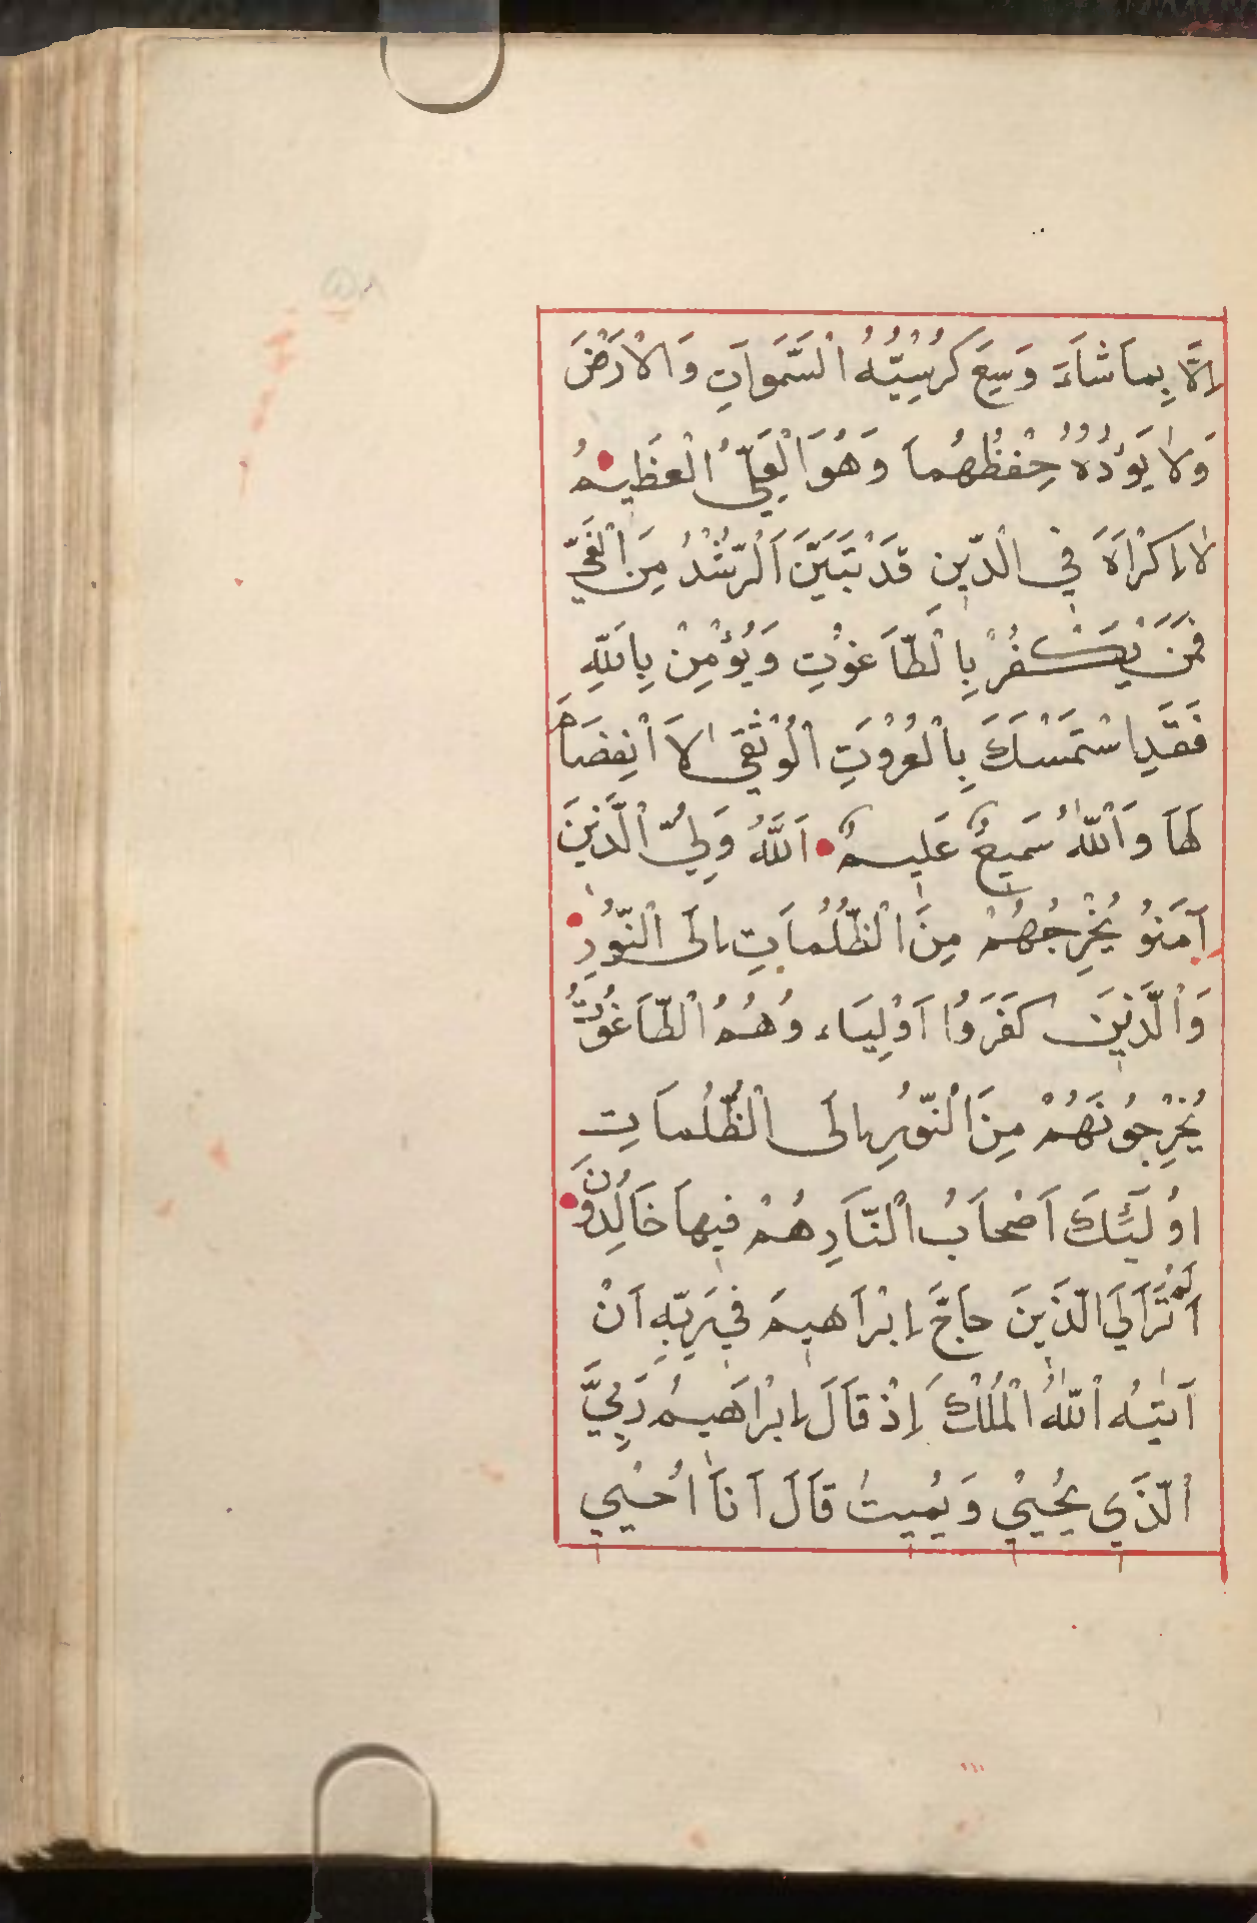 اِلَّا بِمَا شَاءَ وَسِعَ كُرْسِيُّهُ السَّمَوَاتِ وَالْاَرْضَ
وَلَا يَؤُدُهُ حِفْظُهُمَا وَهُوَ الْعَلِيُّ الْعَظِيمُ
لَا اِكْرَاهَ فِي الدِّينِ قَدْ تَبَيَّنَ الرُّشْدُ مِنَ الْغَيِّ
فَمَنْ يَكْفُرْ بِالطَّاغُوتِ وَيُؤْمِنْ بِاللّٰهِ
فَقَدِ اسْتَمْسَكَ بِالْعُرْوَتِ الْوُثْقَى لَا انْفِصَامَ
لَهَا وَاللّٰهُ سَمِيعٌ عَلِيمٌ اَللّٰهُ وَلِيُّ الَّذِينَ
آمَنُو يُخْرِجُهُمْ مِنَ الظُّلُمَاتِ اِلَى النُّورِ
وَالَّذِينَ كَفَرُوا اَوْلِيَاءُهُمُ الطَّاغُوتُ
يُخْرِجُونَهُمْ مِنَ النُّورِ اِلَى الظُّلُمَاتِ
اُولَئِكَ اَصْحَابُ النَّارِ هُمْ فِيهَا خَالِدُونَ
اَلَمْ تَرَ اِلَى الَّذِينَ حَاجَّ اِبْرَاهِيمَ فِي رَبِّهِ اَنْ
آتَيٰهُ اللّٰهُ الْمُلْكَ اِذْ قَالَ اِبْرَاهِيمُ رَبِّيَ
الَّذِي يُحْيِي وَيُمِيتُ قَالَ اَنَا اُحْيِي